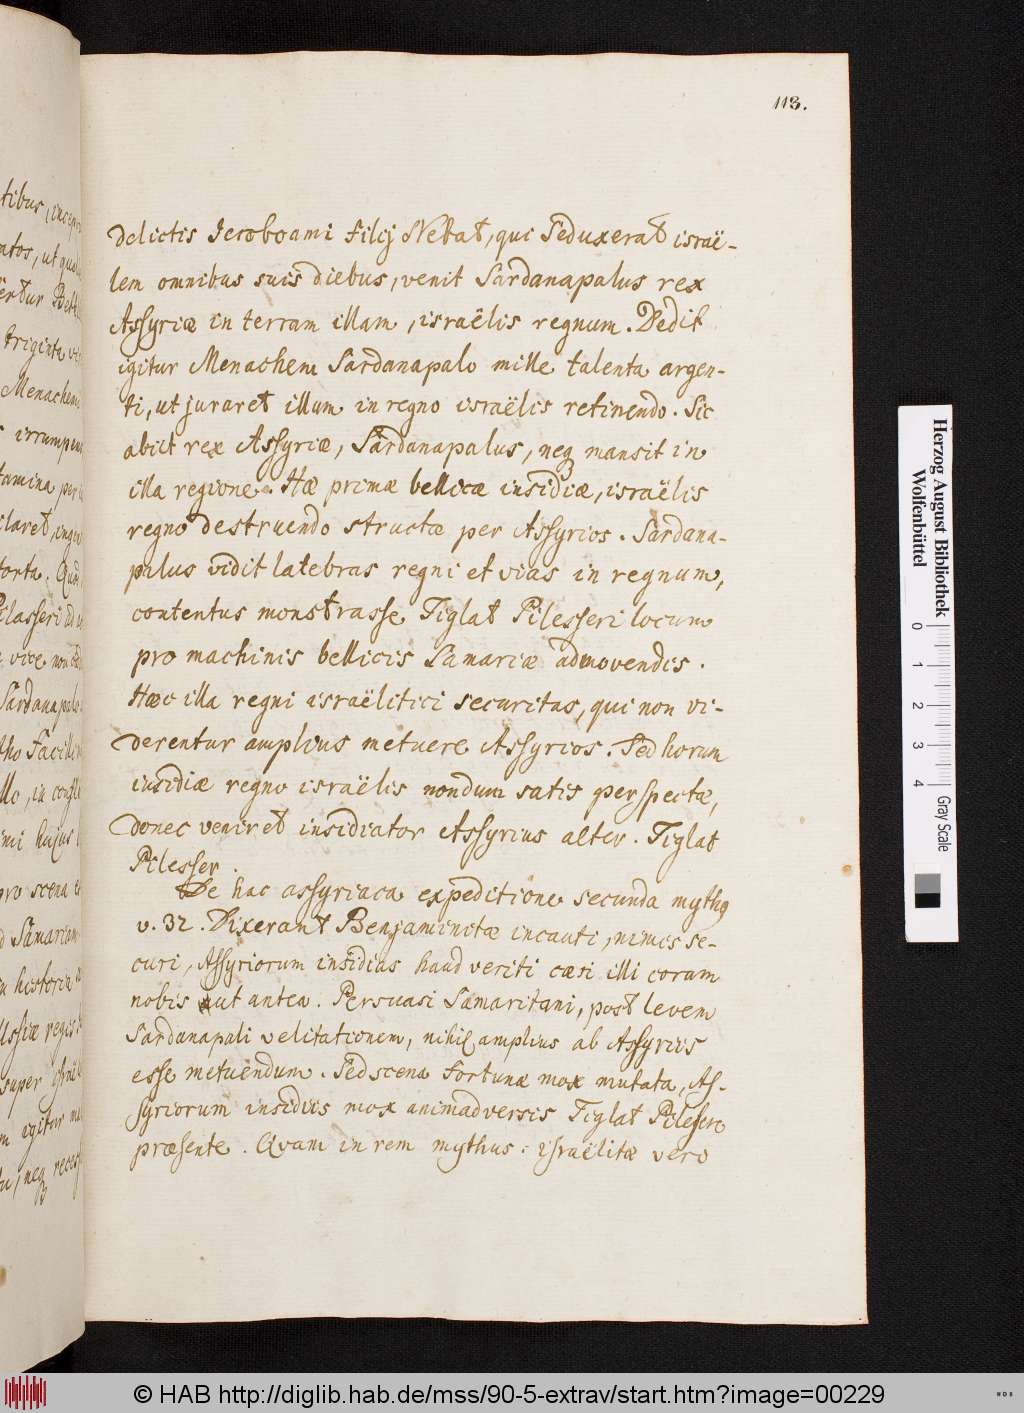 113.
delictis Jeroboami filij Nebat, qui seduxerat israë-
lem omnibus suis diebus, venit Sardanapalus rex
Assyriæ in terram illam, israëlis regnum. Dedit
igitur Menachem Sardanapalo mille talenta argen-
ti, ut juraret illum in regno israëlis retinendo. Sic
abiit rex Assyriæ, Sardanapalus, neq mansit in
illa regione. Hæ primæ bellicæ insidiæ, israëlis
regno destruendo structæ per Assyrios. Sardana-
palus vidit latebras regni et vias in regnum,
contentus monstrasse Tiglat Pilesseri locum
pro machinis bellicis Samariæ admovendis.
Hæc illa regni israëlitici securitas, qui non vi-
derentur amplius metuere Assyrios. Sed horum
insidiæ regno israëlis nondum satis perspectæ,
donec veniret insidiator Assyrius alter. Tiglat
Pilesser.
De hac assyriaca expeditione secunda mythq
v. 32. Dixerant Benjaminitæ incauti, nimis se-
curi, Assyriorum insidias haud veriti cæsi illi coram
nobis ut antea. Persuasi Samaritani, post levem
Sardanapali velitationem, nihil amplius ab Assyriis
esse metuendum. Sed scena fortunæ mox mutata, As-
syriorum insidiis mox animadversis Tiglat Pilesere
præsente. Quam in rem mythus: israëlitæ vero
tibus, incep
atos, ut qua
triginta vi
Menachem
irrumpen
tamina per
claret, inge
torta. Quid
Pilasseri id
vice non
Sardanapalo
ho facill
llo, in confl
imi hujus
pro scena
d Samariam
historia
Ussiæ regis
super isra
m igitur
neq reces
Herzog August Bibliothek
Wolfenbüttel
0 1 2 3 4
Gray Scale
© HAB http://diglib.hab.de/mss/90-5-extrav/start.htm?image=00229